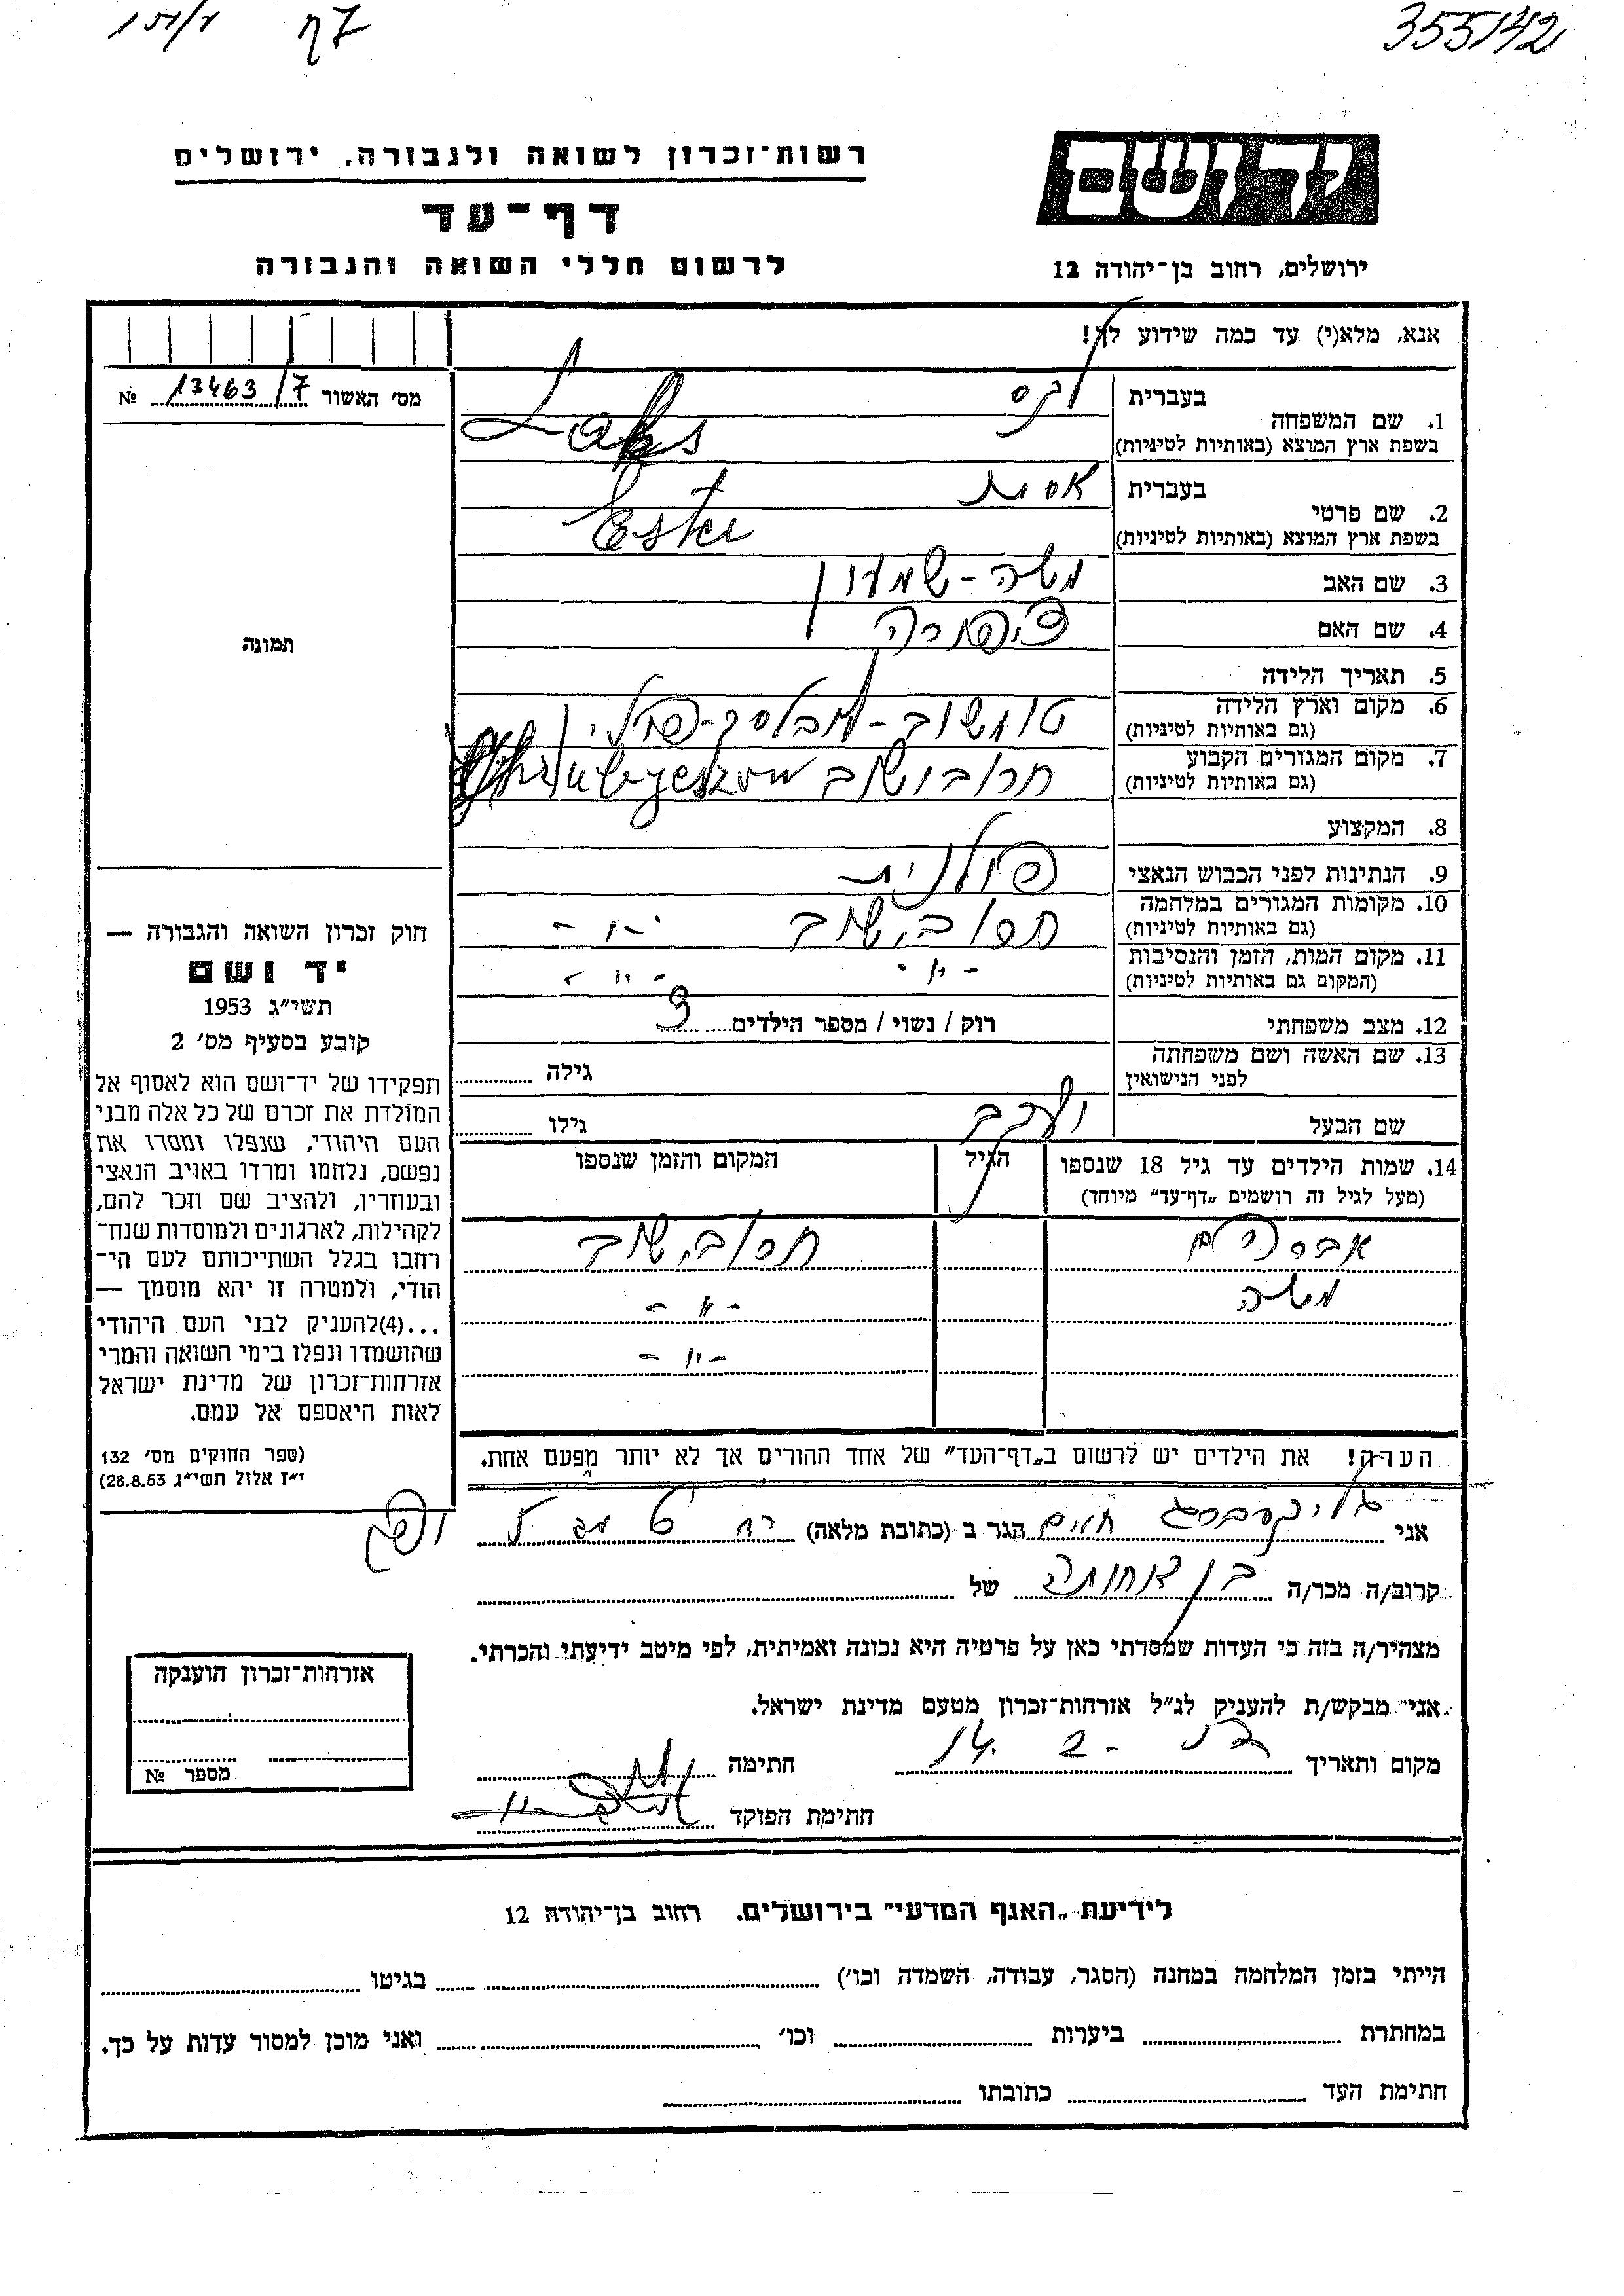 355142
דף
יד ושם
ירושלים, רחוב בן־יהודה 12
רשות־זכרון לשואה ולגבורה, ירושלים
דף־עד
לרשום חללי השואה והגבורה
אנא, מלא(י) עד כמה שידוע לך!
מס׳ האשור 13463/7 №
תמונה
1. שם המשפחה
בעברית לקס
בשפת ארץ המוצא (באותיות לטיניות) Laks
2. שם פרטי
בעברית אסתר
בשפת ארץ המוצא (באותיות לטיניות) Ester
3. שם האב משה - שמעון
4. שם האם ציפורה
5. תאריך הלידה
6. מקום וארץ הלידה
(גם באותיות לטיניות)
7. מקום המגורים הקבוע חרובשוב Hrubyeszow
(גם באותיות לטיניות)
8. המקצוע
9. הנתינות לפני הכבוש הנאצי פולנית
10. מקומות המגורים במלחמה חרובישוב - " -
(גם באותיות לטיניות)
11. מקום המות, הזמן והנסיבות - " - - " -
(המקום גם באותיות לטיניות)
12. מצב משפחתי רוק / נשוי / מספר הילדים 3
13. שם האשה ושם משפחתה גילה
לפני הנישואין
שם הבעל יעקב גילו
14. שמות הילדים עד גיל 18 שנספו הגיל המקום והזמן שנספו
(מעל לגיל זה רושמים „דף־עד" מיוחד)
אברהם חרובישוב
משה - " -
- " -
הערה! את הילדים יש לרשום ב„דף־העד" של אחד ההורים אך לא יותר מפעם אחת.
חוק זכרון השואה והגבורה —
יד ושם
תשי״ג 1953
קובע בסעיף מס׳ 2
תפקידו של יד־ושם הוא לאסוף אל
המולדת את זכרם של כל אלה מבני
העם היהודי, שנפלו ומסרו את
נפשם, נלחמו ומרדו באויב הנאצי
ובעוזריו, ולהציב שם וזכר להם,
לקהילות, לארגונים ולמוסדות שנח־
רחבו בגלל השתייכותם לעם הי־
הודי, ולמטרה זו יהא מוסמך —
...(4)להעניק לבני העם היהודי
שהושמדו ונפלו בימי השואה והמרי
אזרחות־זכרון של מדינת ישראל
לאות היאספם אל עמם.
(ספר החוקים מס׳ 132
י״ז אלול תשי״ג 28.8.53)
אני גליקסברג חיים הגר ב (כתובת מלאה)
קרוב/ה מכר/ה בן אחותה של
מצהיר/ה בזה כי העדות שמסרתי כאן על פרטיה היא נכונה ואמיתית, לפי מיטב ידיעתי והכרתי.
אני מבקש/ת להעניק לנ״ל אזרחות־זכרון מטעם מדינת ישראל.
מקום ותאריך חתימה
חתימת הפוקד
אזרחות־זכרון הוענקה
מספר №
לידיעת „האגף המדעי" בירושלים. רחוב בן־יהודה 12
הייתי בזמן המלחמה במחנה (הסגר, עבודה, השמדה וכו׳) בגיטו
במחתרת ביערות וכו׳ ואני מוכן למסור עדות על כך.
חתימת העד כתובתו